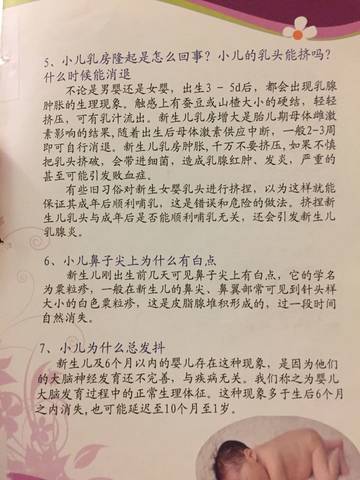 5、小儿乳房隆起是怎么回事？小儿的乳头能挤吗？
什么时候能消退
不论是男婴还是女婴，出生3－5d后，都会出现乳腺
肿胀的生理现象。触感上有蚕豆或山楂大小的硬结，轻轻
挤压，可有乳汁流出。新生儿乳房增大是胎儿期母体雌激
素影响的结果，随着出生后母体激素供应中断，一般2-3周
即可自行消退。新生儿乳房肿胀，千万不要挤压，如果不慎
把乳头挤破，会带进细菌，造成乳腺红肿、发炎，严重的
甚至可能引发败血症。
有些旧习俗对新生女婴乳头进行挤捏，以为这样就能
保证其成年后顺利哺乳，这是错误和危险的做法。挤捏新
生儿乳头与成年后是否能顺利哺乳无关，还会引发新生儿
乳腺炎。
6、小儿鼻子尖上为什么有白点
新生儿刚出生前几天可见鼻子尖上有白点，它的学名
为粟粒疹，一般在新生儿的鼻尖、鼻翼部常可见到针头样
大小的白色粟粒疹，这是皮脂腺堆积形成的，过一段时间
自然消失。
7、小儿为什么总发抖
新生儿及6个月以内的婴儿存在这种现象，是因为他们
的大脑神经发育还不完善，与疾病无关。我们称之为婴儿
大脑发育过程中的正常生理体征。这种现象多于生后6个月
之内消失，也可能延迟至10个月至1岁。